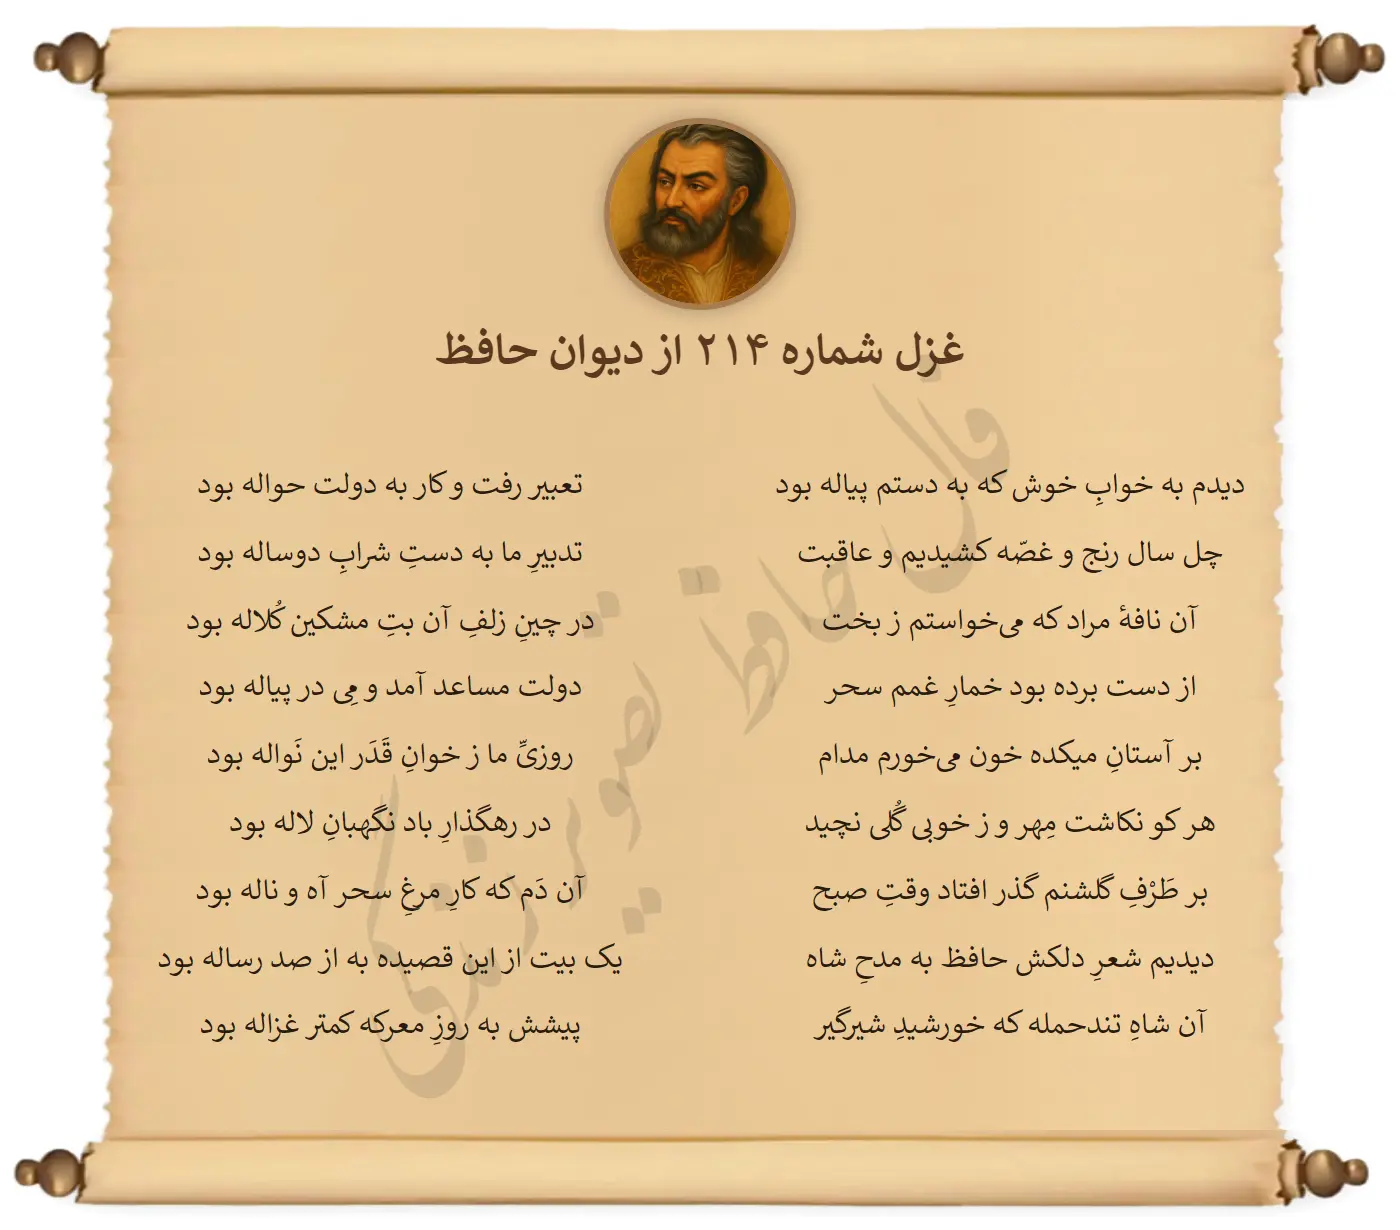 غزل شماره ۲۱۴ از دیوان حافظ
دیدم به خوابِ خوش که به دستم پیاله بود
تعبیر رفت و کار به دولت حواله بود
چل سال رنج و غصّه کشیدیم و عاقبت
تدبیرِ ما به دستِ شرابِ دوساله بود
آن نافهٔ مراد که می‌خواستم ز بخت
در چینِ زلفِ آن بتِ مشکین کُلاله بود
از دست برده بود خمارِ غمم سحر
دولت مساعد آمد و مِی در پیاله بود
بر آستانِ میکده خون می‌خورم مدام
روزیِّ ما ز خوانِ قَدَر این نَواله بود
هر کو نکاشت مِهر و ز خوبی گُلی نچید
در رهگذارِ باد نگهبانِ لاله بود
بر طَرْفِ گلشنم گذر افتاد وقتِ صبح
آن دَم که کارِ مرغِ سحر آه و ناله بود
دیدیم شعرِ دلکش حافظ به مدحِ شاه
یک بیت از این قصیده به از صد رساله بود
آن شاهِ تندحمله که خورشیدِ شیرگیر
پیشش به روزِ معرکه کمتر غزاله بود
فال حافظ تصویر زندگی